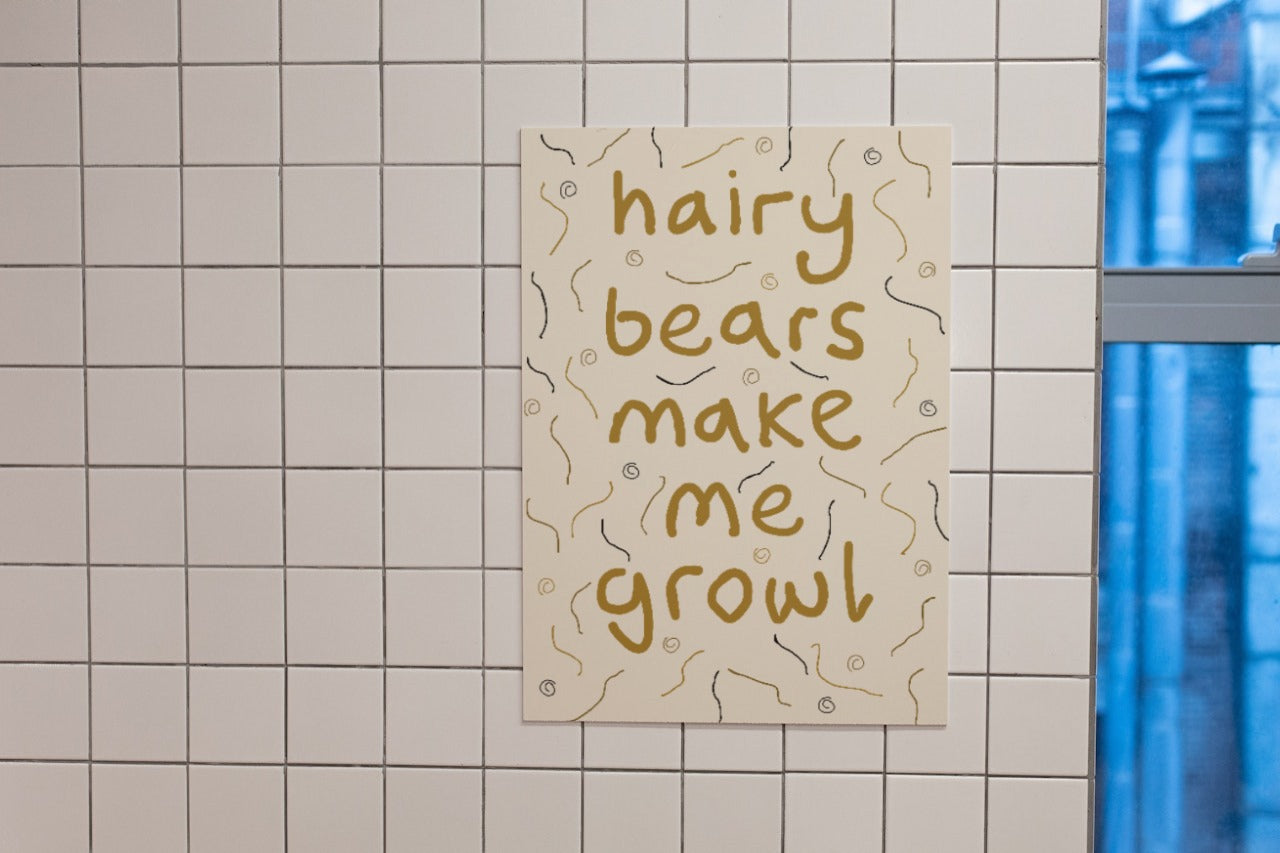 hairy
bears
make
me
growl